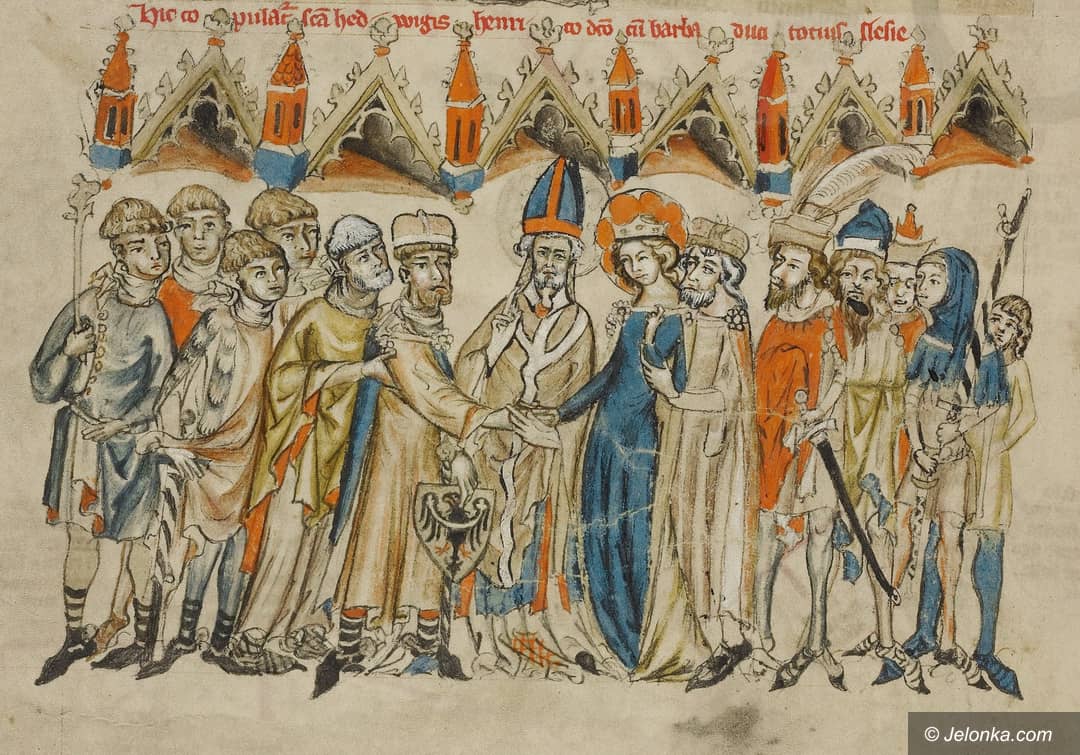 Hic copulatr sca hedwigis henrico dco cu barba duci totius slesie
© Jelonka.com